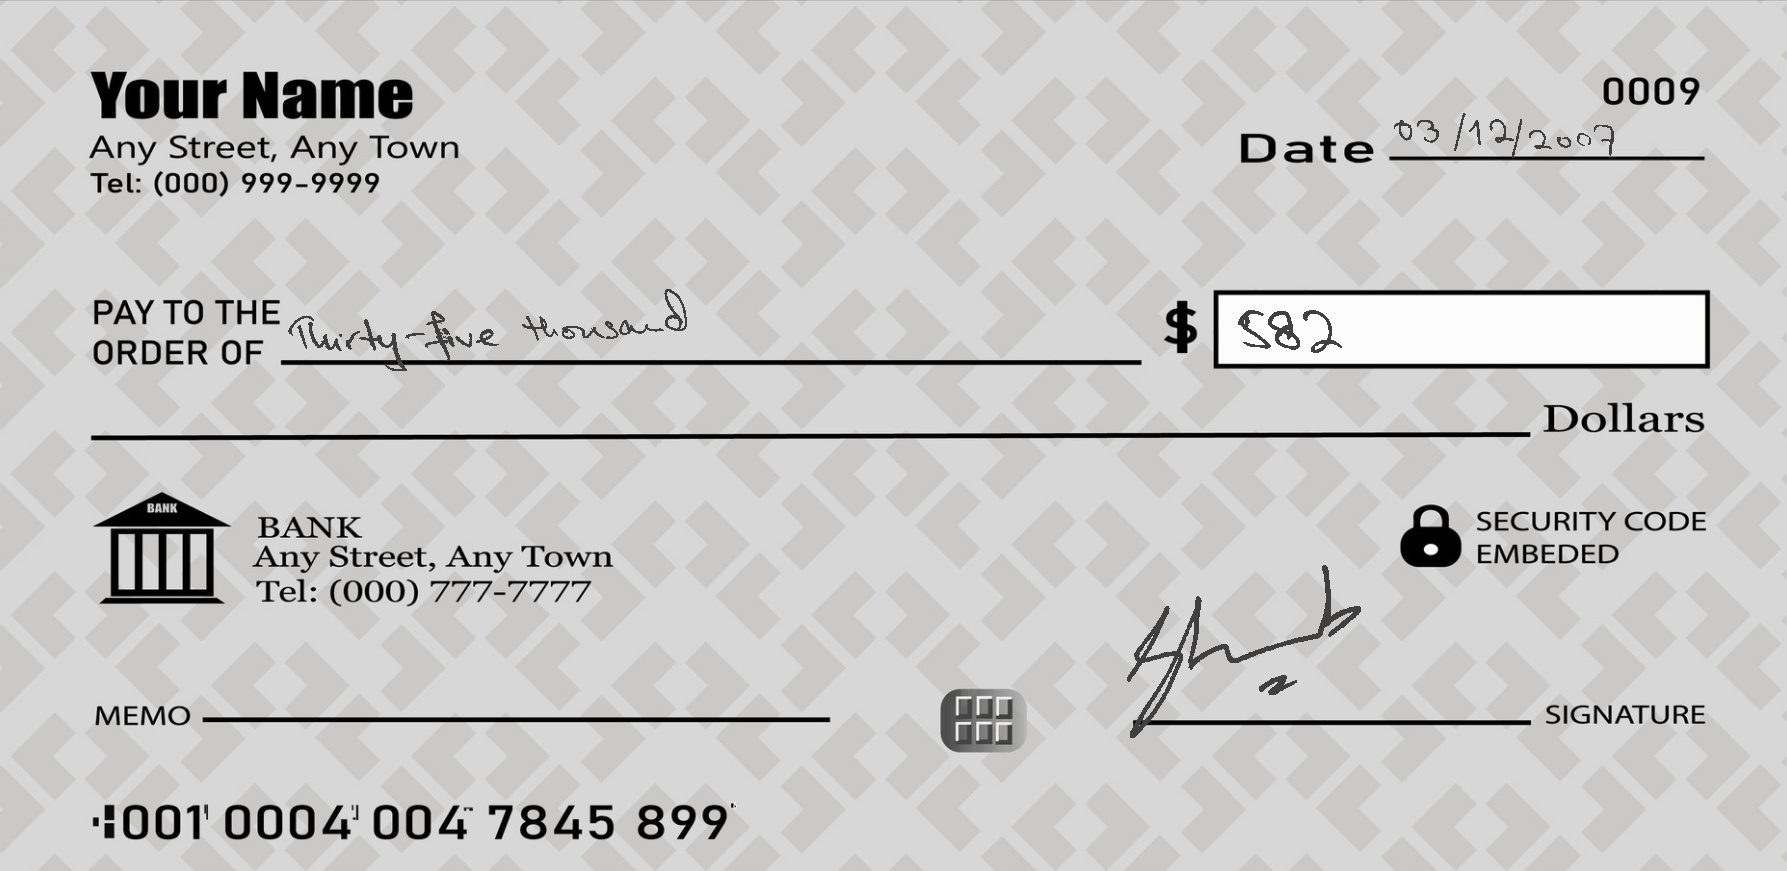 Your Name
Any Street, Any Town
Tel: (000) 999-9999
0009
Date 03/12/2007
PAY TO THE
ORDER OF Thirty-five thousand $ 582
Dollars
BANK
BANK
Any Street, Any Town
Tel: (000) 777-7777
SECURITY CODE
EMBEDED
MEMO
SIGNATURE
001 0004 004 7845 899